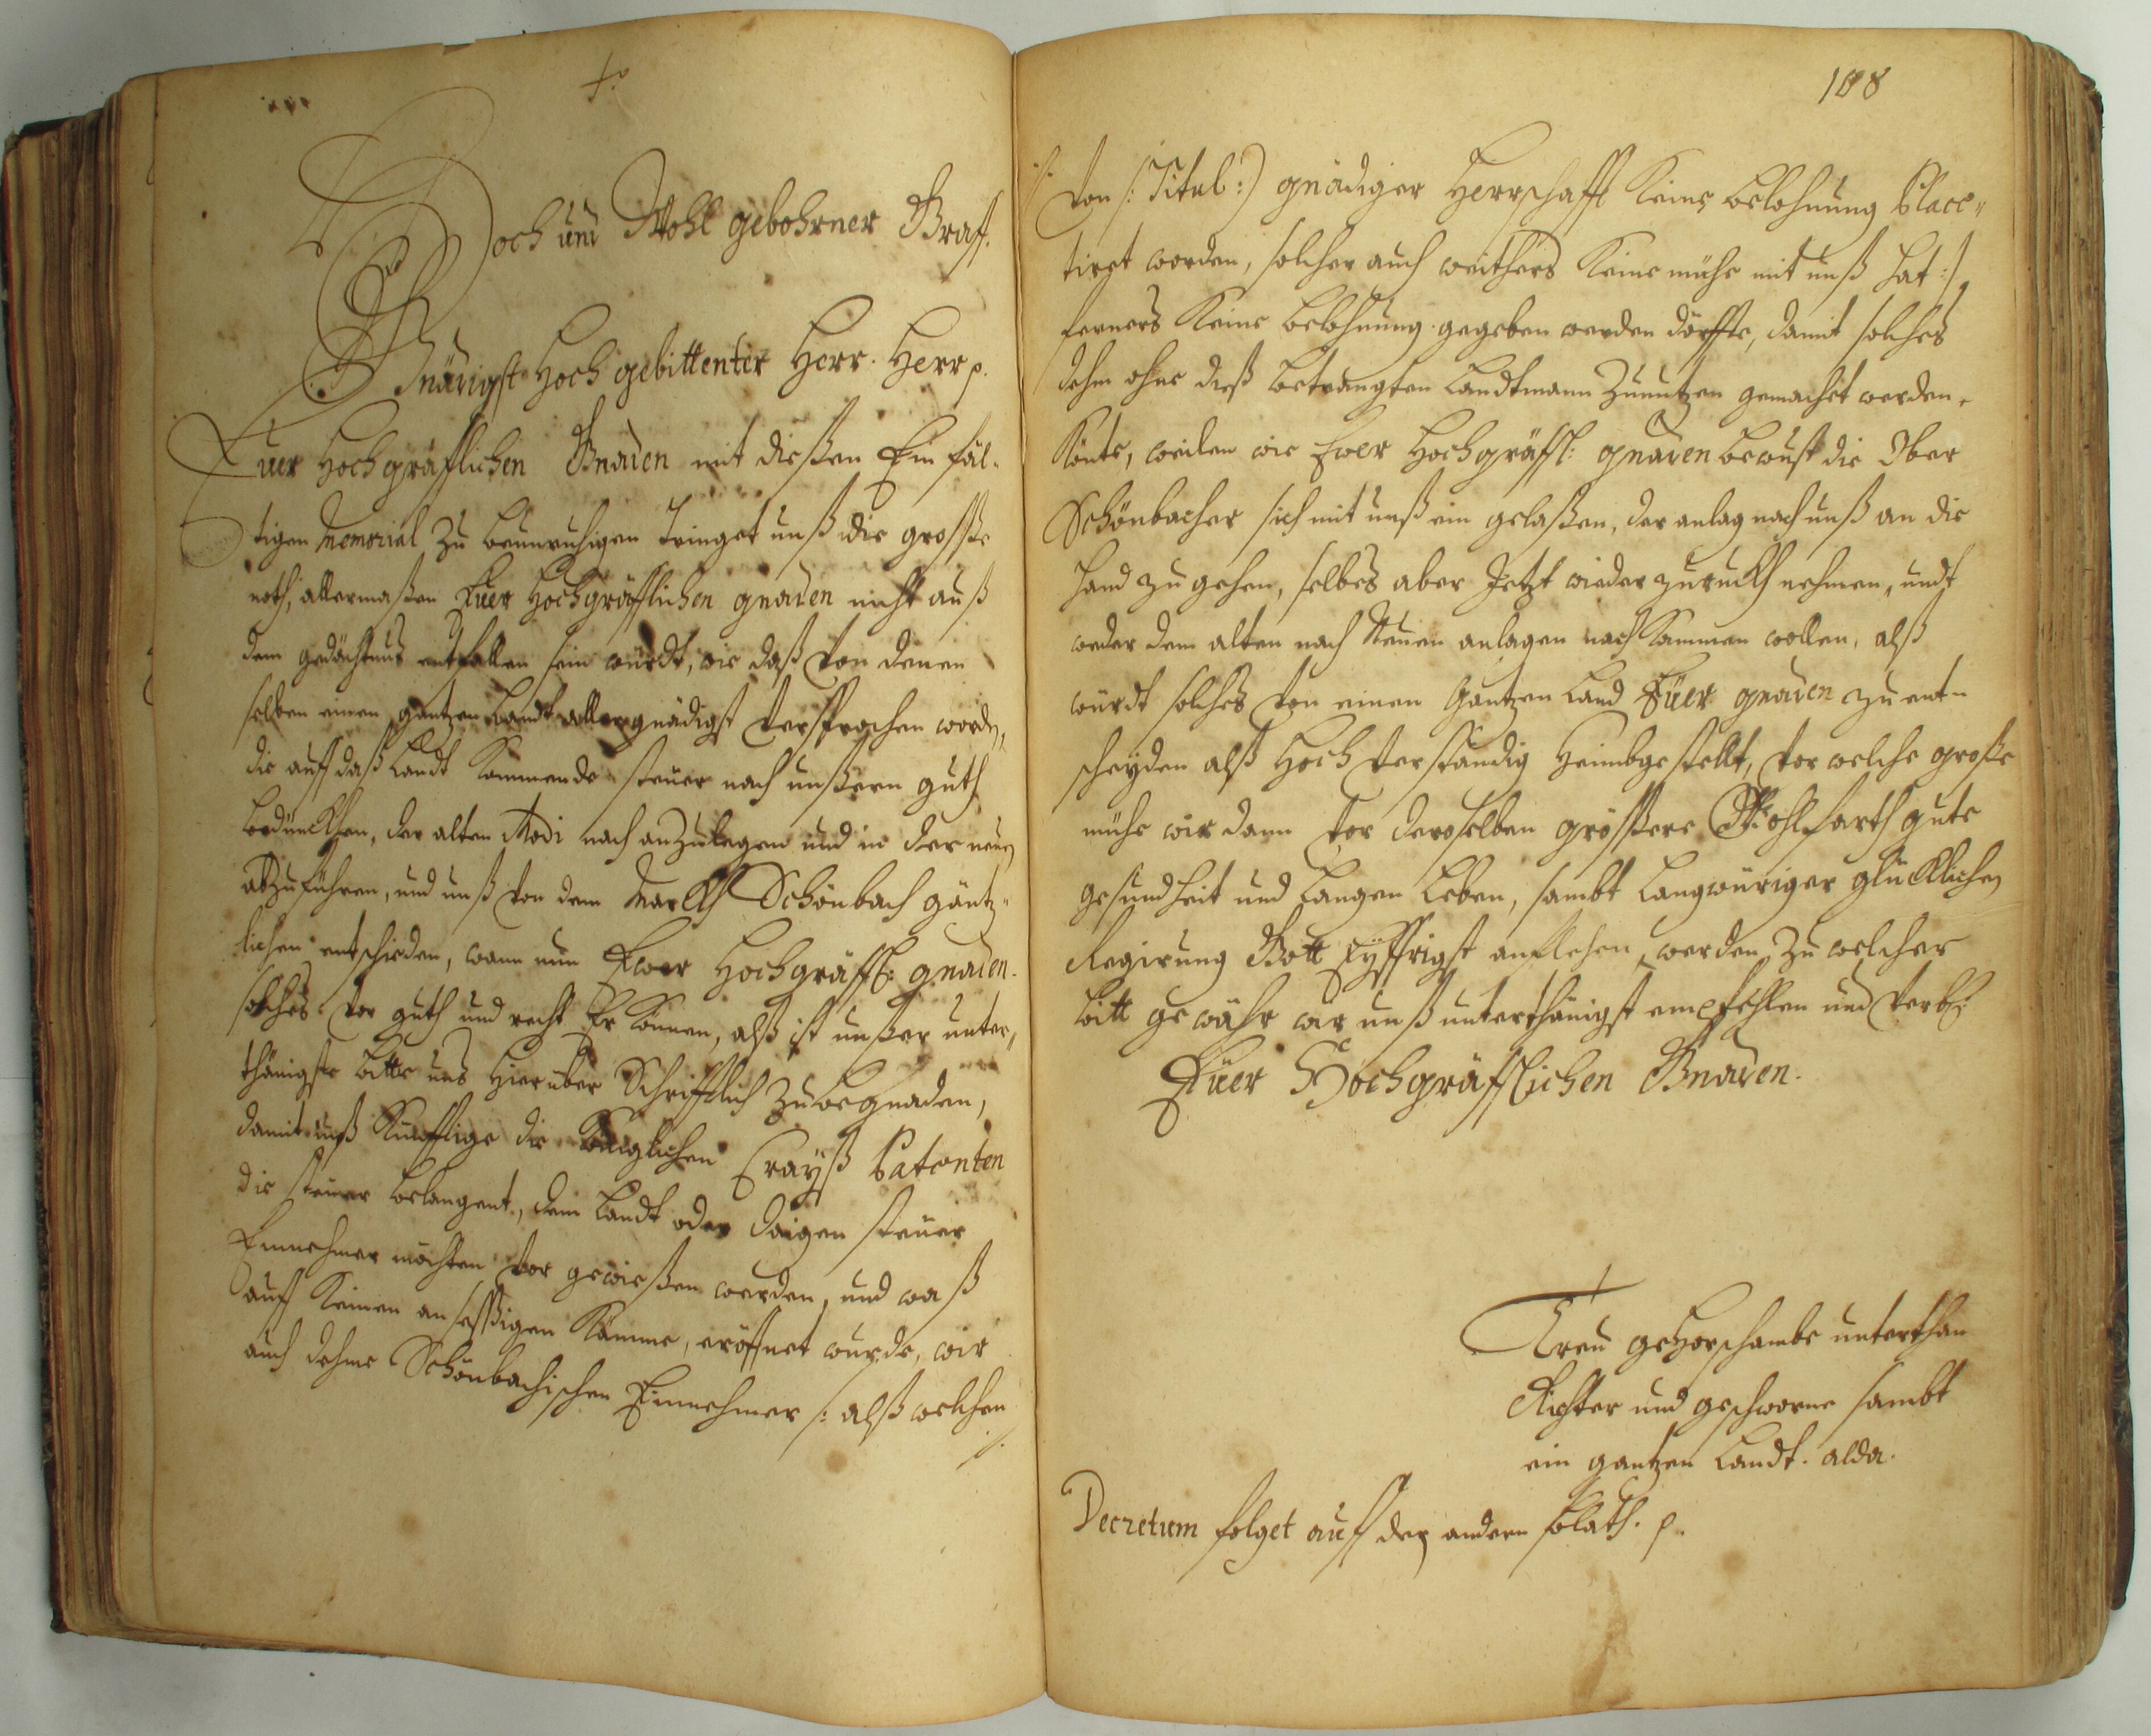 Hoch und Wohl gebohrner Graf.
Gnädigst Hoch gebittenter Herr. Herr p.
Euer Hochgräfflichen Gnaden mit dießen Ein fäl-
tigen Memorial zu beunruhigen tringet unß die grosse
noth, allermaßen Euer Hochgräfflichen gnaden nicht auß
dem gedächtnus entfallen sein würdt, wie daß von denen
selben einen gantzen Landt allergnädigst versprochen worden,
die auf daß Landt kommende steuer nach unßern guth
bedünckhen, der alten Modi nach anzulegen und in der neuen
abzuführen, und unß von dem Markh Schönbach gäntz-
lichen entschieden, wann nun Ewer Hochgräffl: gnaden.
solches vor guth und recht Er können, alß ist unßer unter-
thänigste bitte uns hierüber Schrifftlich zubegnaden,
damit unß künfftige die Königlichen Crayß Patenten
die steuer belangent, dem Landt oder steuer
Einnehmer möchten vor gewießen werden, und waß
auf keinen an seßigen komme, eröffnet wurde, wir
auch dehme Schönbachischen Einnehmer /: alß welchen
./.
108
./. von /: Titul :/ gnädiger Herrschafft keine belohnung Place-
tiret worden, solcher auch weithers keine mühe mit unß hat :/
ferners keine belohnung gegeben werden dörffte, damit solches
dehm ohne dieß betrangten Landtmann zunutzen gemachet werden
könte, weilen wie Ewer Hochgräffl: gnaden bewust die Ober
Schönbacher sich mit unß ein gelaßen, der anlag nach unß an die
Hand zu gehen, selbes aber Jetzt wieder zuruckh nehmen, undt
weder dem alten nach Neuen anlagen nach kommen wollen, alß
würdt solches von einen Gantzen Land Euer gnaden zu ent-
scheyden alß Hoch verständig heimbgestellt, vor welche große
mühe wir dann vor deroselben größere Wohlfarth gute
gesundheit und Langen Leben, sambt Langwüriger glücklichen
Regirung Gott Eyffrigst anflehen werden zu welcher
bitt gewähr wir unß unterthänigst empfehlen und verbl:
Euer Hochgräfflichen Gnaden.
Treu gehorsambe unterthan
Richter und geschworne sambt
ein gantzen Landt. alda.
Decretum folget auf der andern blath. p.